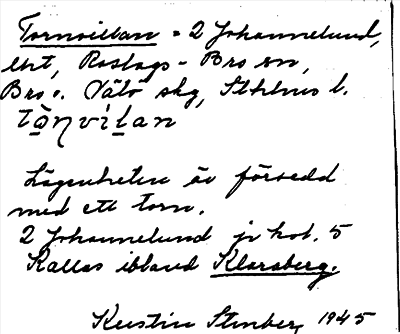 Tornvillan = 2 Johannelund,
lht, Roslags-Bro sn,
Bro o. Vätö skg, Sthlms l.
tɷ̀ṇvìlan
Lägenheten är försedd
med ett torn.
2 Johannelund jr kbl. 5
Kallas ibland Klarsberg.
Kerstin Stenberg 1945